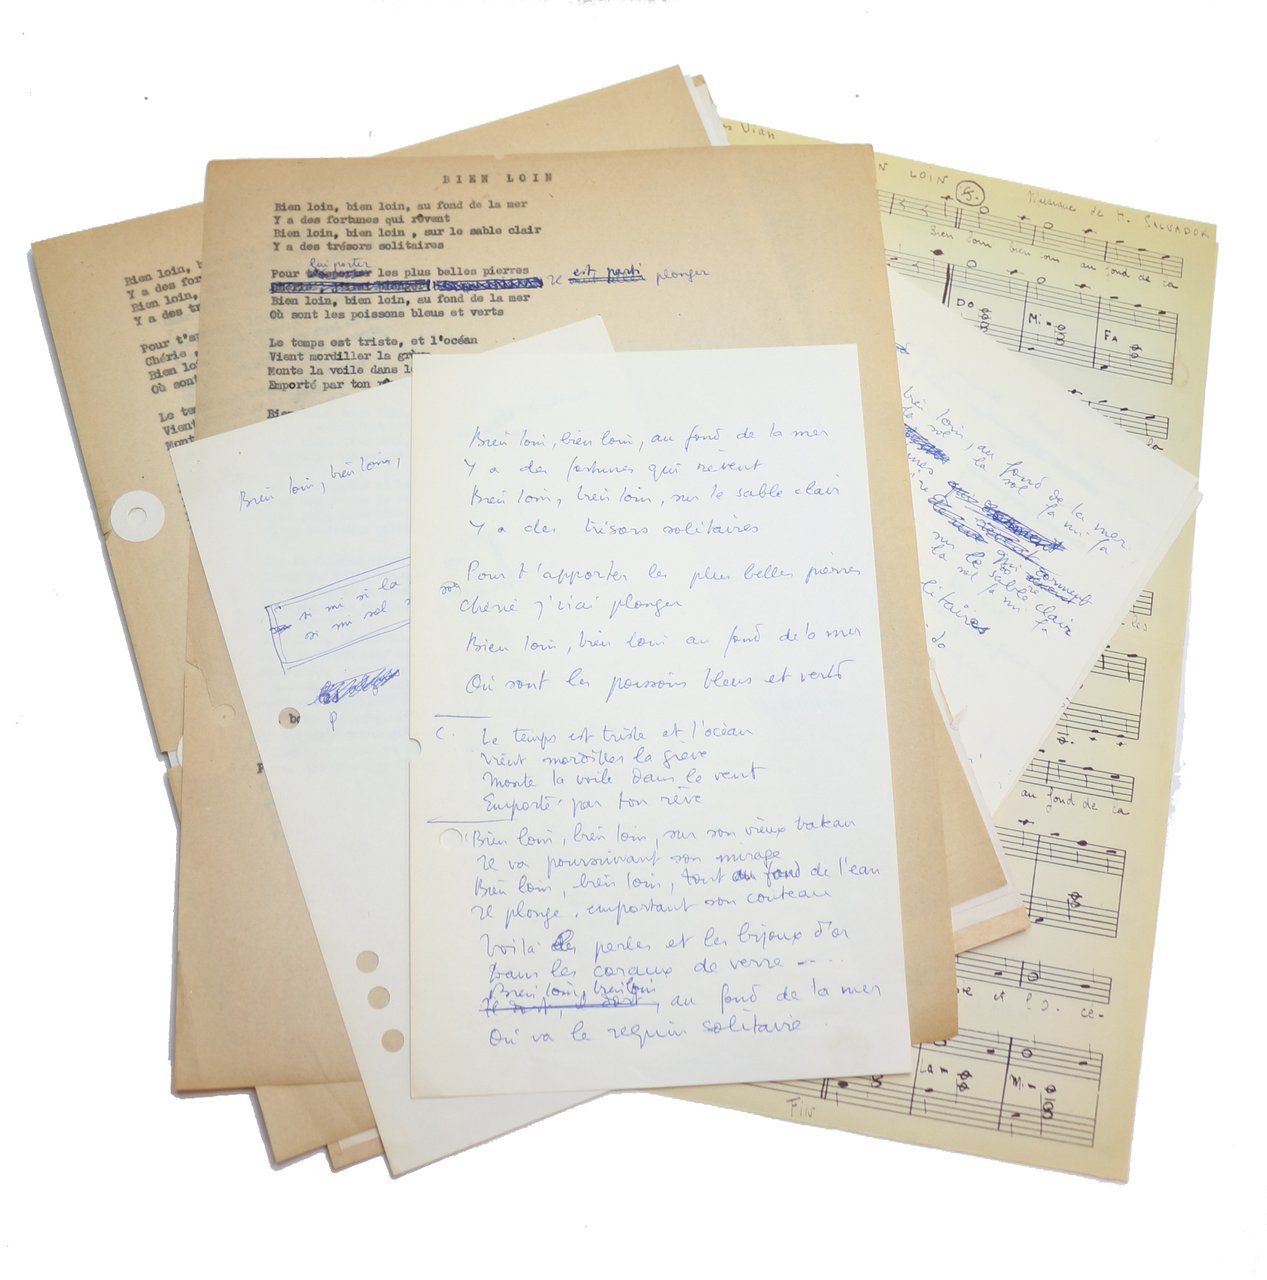 BIEN LOIN
Bien loin, bien loin, au fond de la mer
Y a des fortunes qui rêvent
Bien loin, bien loin , sur le sable clair
Y a des trésors solitaires
lui porter
Pour t'apporter les plus belles pierres
Chérie, j'irai plonger Il est parti plonger
Bien loin, bien loin, au fond de la mer
Où sont les poissons bleus et verts
Le temps est triste, et l'océan
Vient mordiller la grève
Monte la voile dans le
Emporté par ton
Bien
Bien loin,
Y a des for
Bien loin,
Y a des tr
Pour t'a
Chérie ,
Bien loi
Où sont
Le tem
Vient
Mont
Vian
LOIN
5.
Musique de H. SALVADOR
Bien loin bien loin au fond de la
DO
Mi-
FA
les
au fond de la
re et l'O- cé-
Lam
Mi-
FIN
Bien loin, bien loin,
si mi si la
si mi sol
P
loin, au fond de la mer
la sol la mi fa
qui dorment
sur le sable clair
la sol la mi fa
solitaires
do
Bien loin, bien loin, au fond de la mer
Y a des fortunes qui rêvent
Bien loin, bien loin, sur le sable clair
Y a des trésors solitaires
Pour t'apporter les plus belles pierres
Chérie j'irai plonger
Bien loin, bien loin au fond de la mer
Où sont les poissons bleus et verts
C. Le temps est triste et l'océan
Vient mordiller la grève
Monte la voile dans le vent
Emporté par ton rêve
Bien loin, bien loin, sur son vieux bateau
Il va poursuivant son mirage
Bien loin, bien loin, tout au fond de l'eau
Il plonge, emportant son couteau
Voilà les perles et les bijoux d'or
Dans les coraux de verre ....
Bien loin, bien loin
au fond de la mer
Où va le requin solitaire